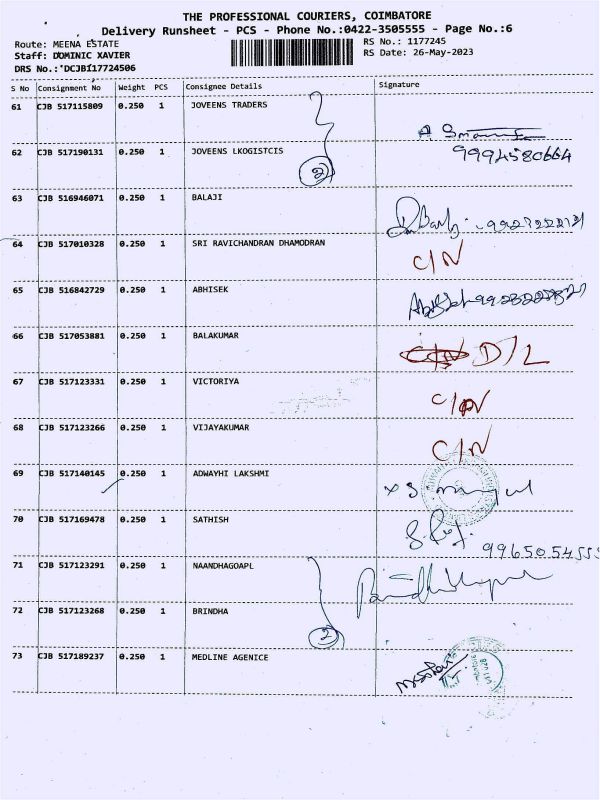 THE PROFESSIONAL COURIERS, COIMBATORE
Delivery Runsheet - PCS - Phone No.:0422-3505555 - Page No.:6
Route: MEENA ESTATE
RS No.: 1177245
Staff: DOMINIC XAVIER
RS Date: 26-May-2023
DRS No.: DCJB117724506
S No Consignment No Weight PCS Consignee Details Signature
61 CJB 517115809 0.250 1 JOVEENS TRADERS
62 CJB 517190131 0.250 1 JOVEENS LKOGISTCIS 9994580664
2
63 CJB 516946071 0.250 1 BALAJI
64 CJB 517010328 0.250 1 SRI RAVICHANDRAN DHAMODRAN C/N
65 CJB 516842729 0.250 1 ABHISEK
66 CJB 517053881 0.250 1 BALAKUMAR D/L
67 CJB 517123331 0.250 1 VICTORIYA
68 CJB 517123266 0.250 1 VIJAYAKUMAR C/N
69 CJB 517140145 0.250 1 ADWAYHI LAKSHMI
70 CJB 517169478 0.250 1 SATHISH
71 CJB 517123291 0.250 1 NAANDHAGOAPL
72 CJB 517123268 0.250 1 BRINDHA
2
73 CJB 517189237 0.250 1 MEDLINE AGENICE